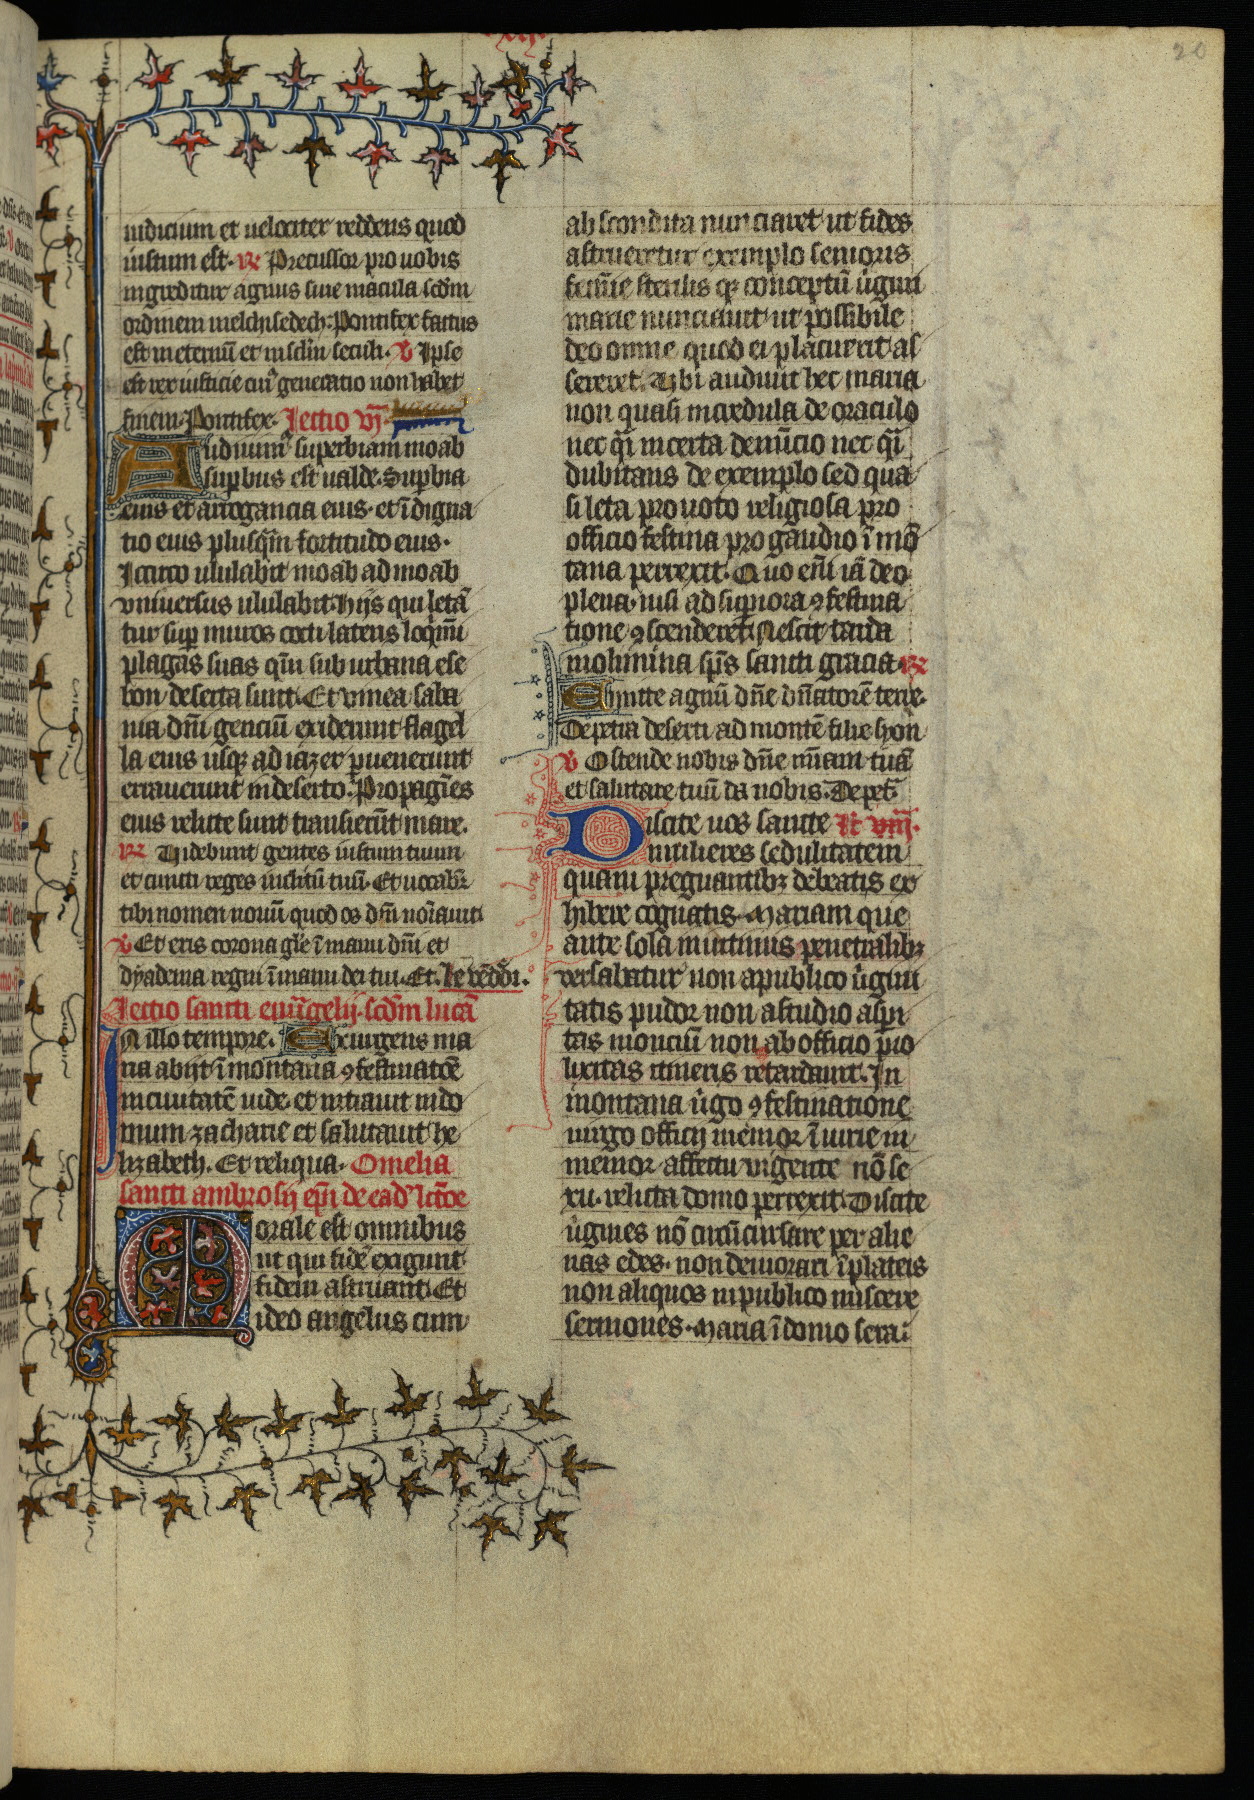 20
iudicium et uelociter reddens quod
iustum est. R̃ Precussor pro uobis
ingreditur agnus sine macula scd̃m
ordinem melchisedech: Pontifex factus
est in eternũ et in sclm̃ seculi. V Ipse
est rex iusticie cuiꝰ generatio non habet
finem. Pontifex. Lectio vij.
Audiuimꝰ superbiam moab
superbus est ualde. Supbia
eius et arrogancia eius. et ĩdigna
tio eius plusq̃m fortitudo eius.
Iccirco ululabit moab ad moab
vniuersus ululabit. hijs qui letã
tur sup muros cocti lateris loq̃mĩ
plagas suas q̃m suburbana ese
bon deserta sunt. Et vinea saba
ma dñi genciũ exciderunt flagel
la eius usqꝫ ad iazer puenerunt
errauerunt in deserto. Propagĩes
eius relicte sunt transierũt mare.
R̃ Uidebunt gentes iustum tuum
et cuncti reges inclitũ tuũ. Et uocabr̃
tibi nomen nouũ quod os dñi noĩauit
V Et eris corona gl̃e ĩ manu dñi et
dyadema regni ĩ manu dei tui. Et.
Lectio sancti euũgelij. scd̃m lucã
In illo tempore. Exurgens ma
ria abijt ĩ montana ꝯ festinatõe
in ciuitatẽ iude. et intrauit in do
mum zacharie et salutauit he
lizabeth. Et reliqua. Omelia
sancti ambrosij ep̃i de eadꝰ lcc̃õe
Morale est omnibus
ut qui fidẽ exigunt
fidem astruant. Et
ideo angelus cum
abscondita nunciaret ut fides
astrueretur exemplo senioris
femĩe sterilis qꝫ conceptũ ũgini
marie nunciauit ut possibile
deo omne quod ei placuerit as
sereret. Ubi audiuit hec maria
non quasi incredula de oraculo
nec q̃i incerta de nũcio nec q̃i
dubitans de exemplo sed qua
si leta pro uoto religiosa pro
officio festina pro gaudio ĩ mõ
tana perrexit. Quo eñi iã deo
plena. nisi ad supiora ꝯ festina
tione ꝯscenderet. Nescit tarda
molimina sp̃s sancti gracia. R̃
Emitte agnũ dñe dñatorẽ terre.
De petra deserti ad montẽ filie syon
V Ostende nobis dñe m̃iam tuã
et salutare tuũ da nobis. De pet̃
Discite uos sancte lc̃ viij.
mulieres sedulitatem
quam pregnantibꝫ debeatis ex
hibere cognatis. Mariam que
ante sola in intimis penetralibꝫ
versabatur non a publico ũgini
tatis pudor non a studio asp̃i
tas monciũ non ab officio p̃lo
lixitas itineris retardauit. In
montana ũgo ꝯ festinatione
uirgo officij memor ĩiurie in
memor affectu urgente nõ se
xu. relicta domo perrexit. Discite
ũgines nõ circũcursare per alie
nas edes. non demorari ĩ plateis
non aliquos in publico miscere
sermones. Maria ĩ domo sera: